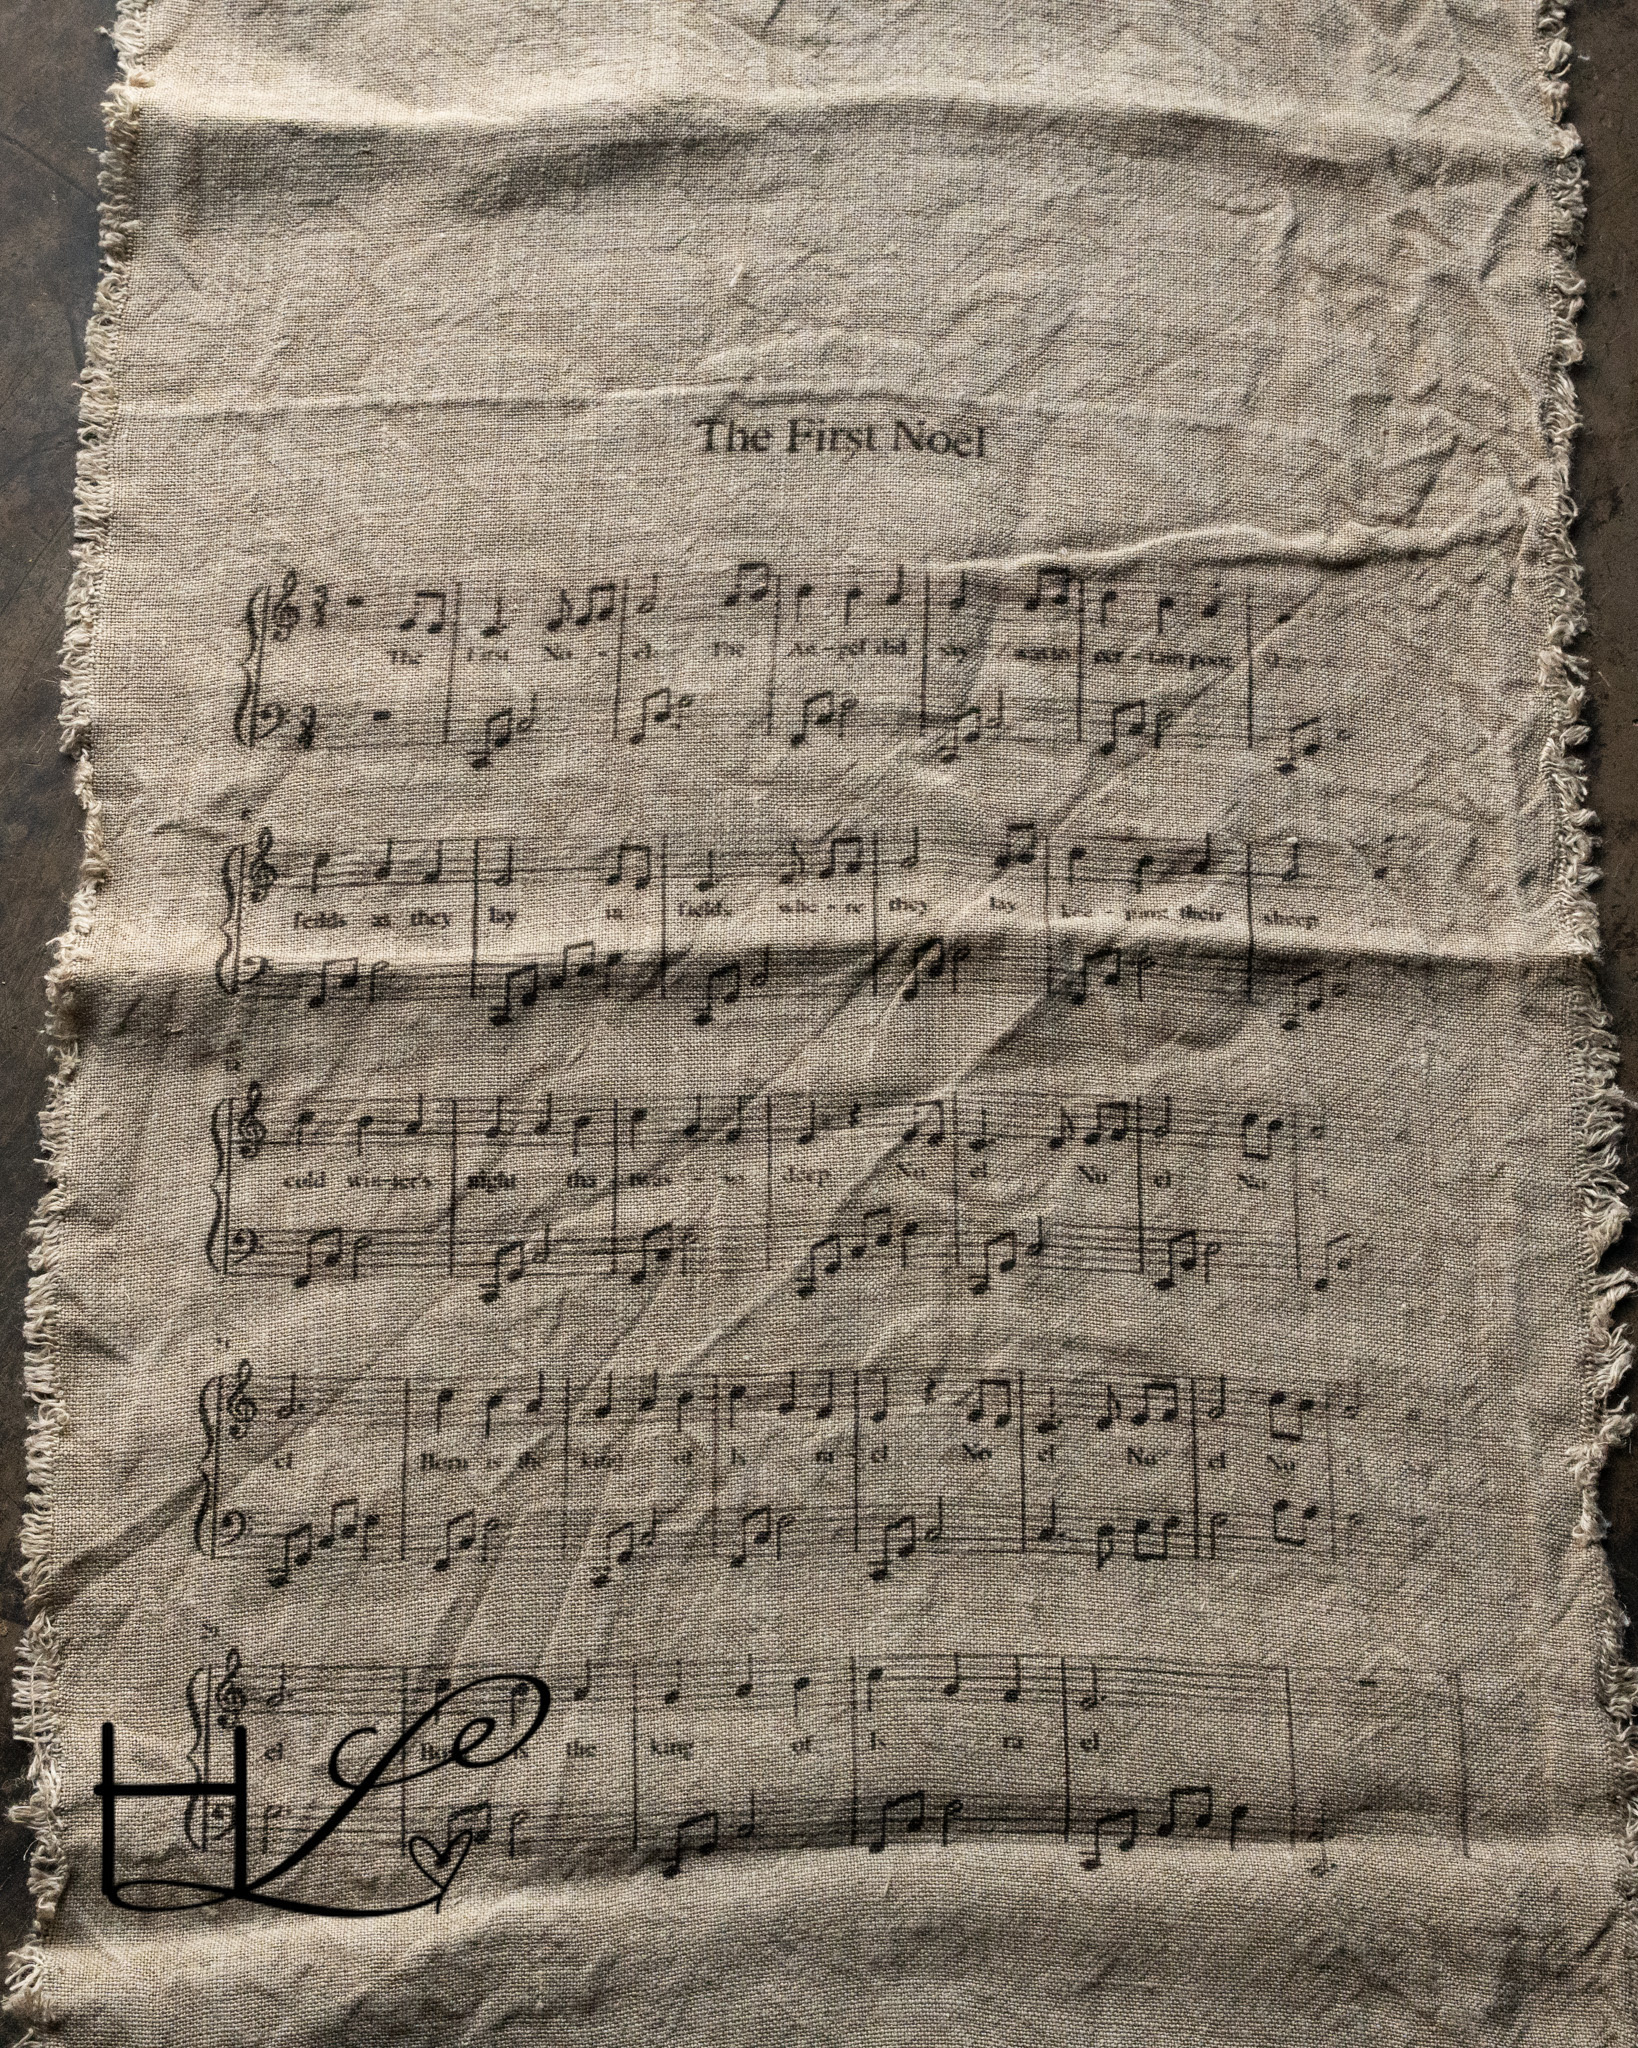 The First Noel
The First No - el The An - gel did say was to cer - tain poor
feilds as they lay in fields whe - re they lay kee - ping their sheep
cold win-ter's night tha twas - so deep No el No el No
el Born is the king of Is ra el No el No el No
el Bo is the king of Is ra el
HL